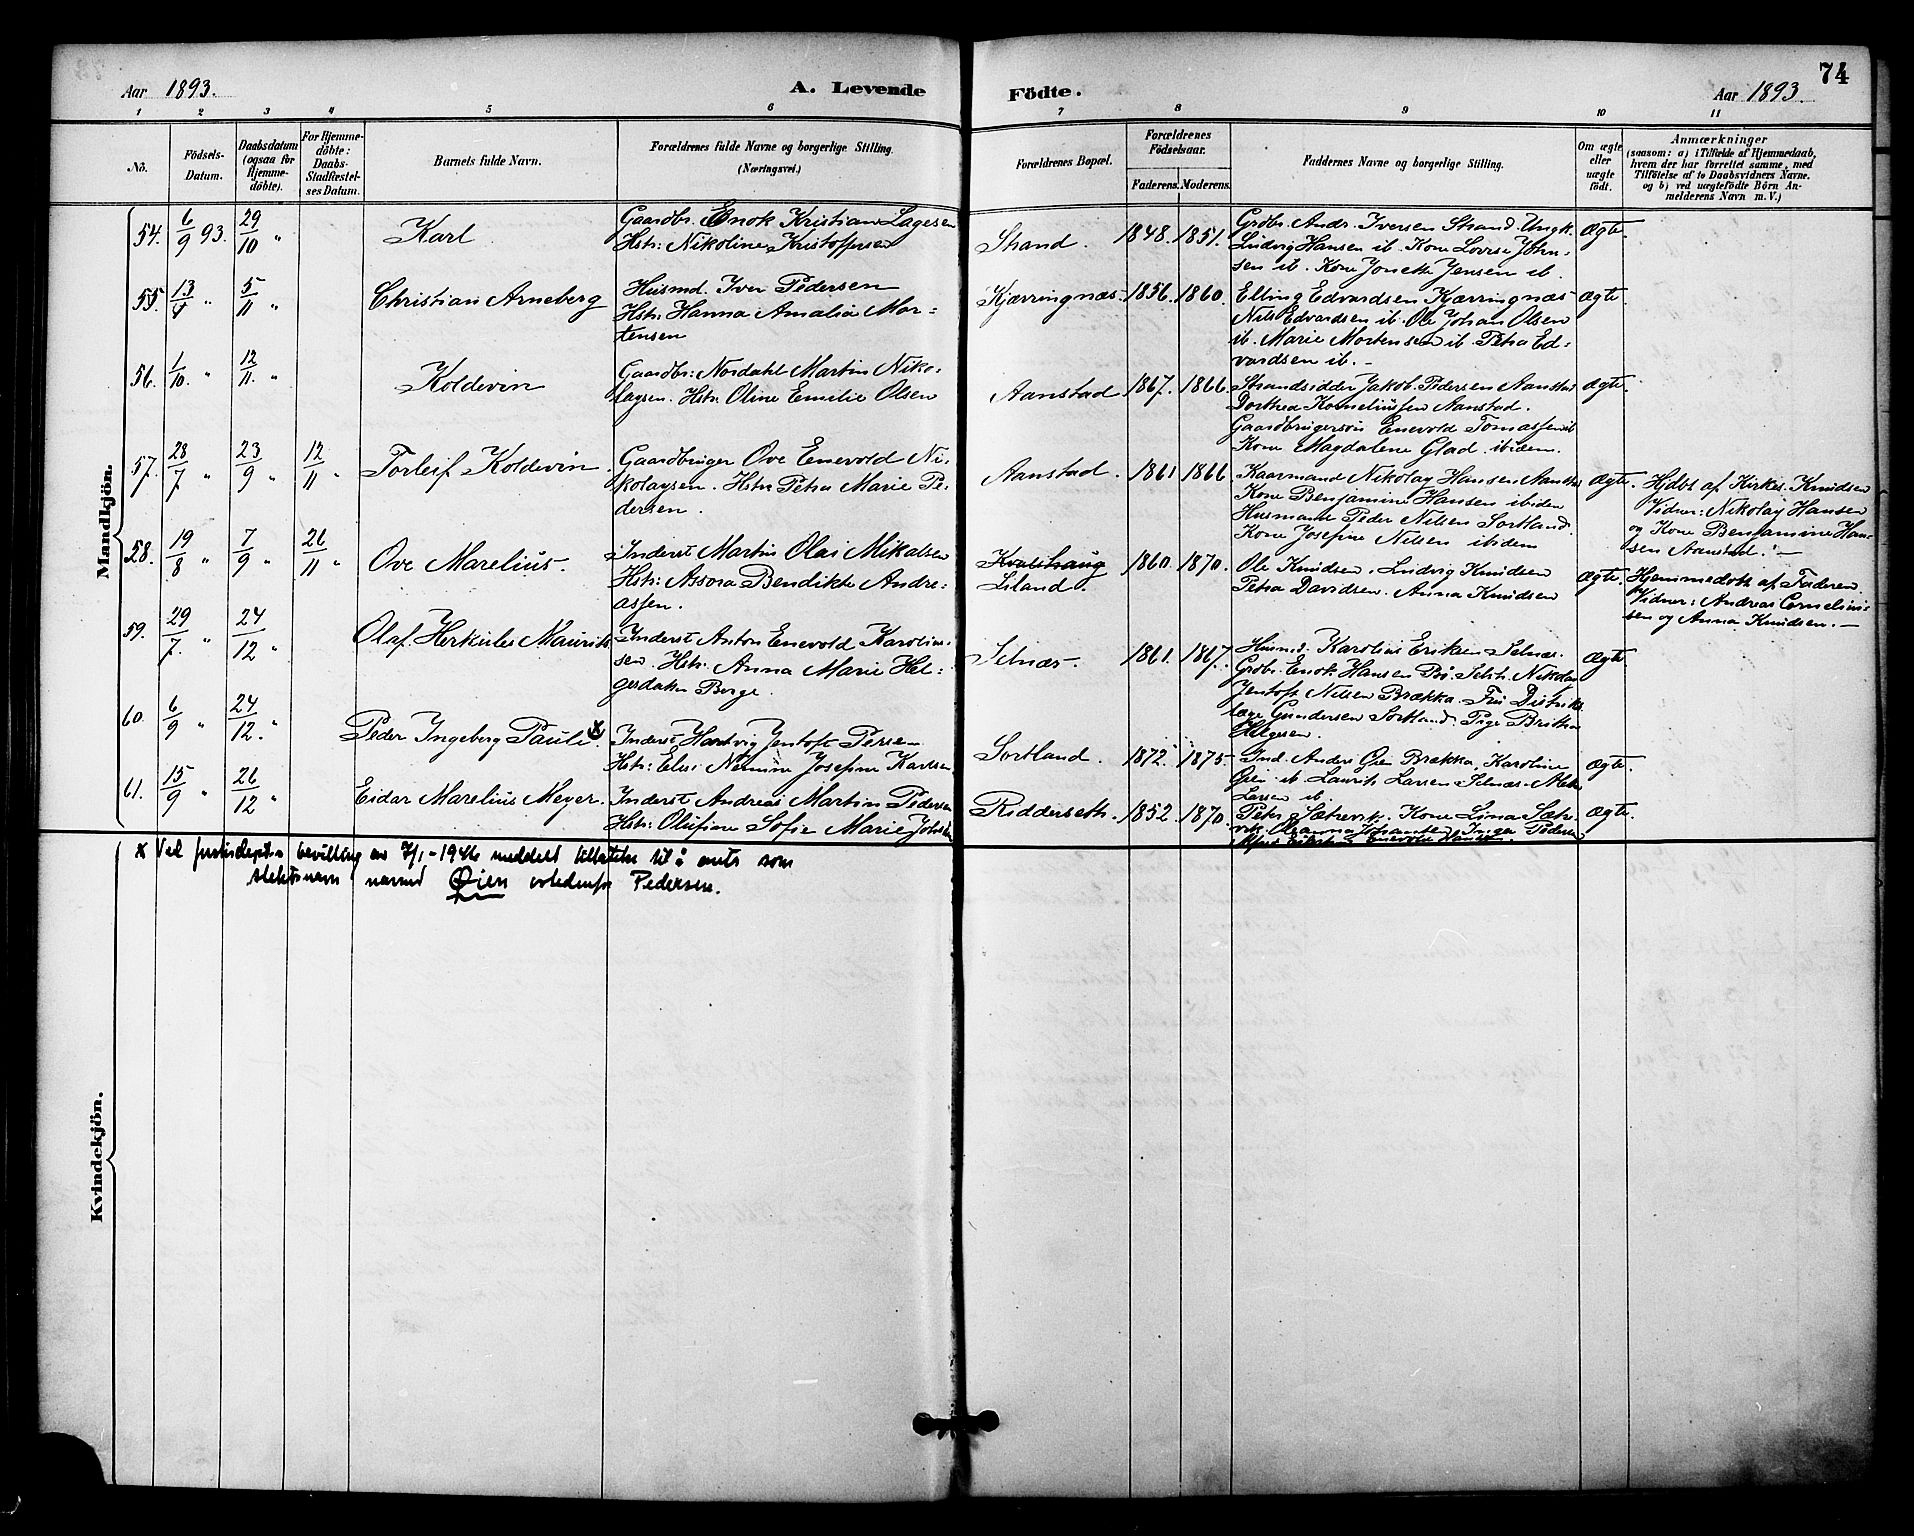 74
Aar 1893. A. Levende Födte. Aar 1893.
1 2 3 4 5 6 7 8 9 10 11
No.
Födsels-
Datum.
Daabsdatum
(ogsaa for
Hjemme-
döbte).
For Hjemme-
döbte:
Daabs-
Stadfæstel-
ses Datum.
Barnets fulde Navn.
Forældrenes fulde Navne og borgerlige Stilling.
(Næringsvei.)
Forældrenes Bopæl.
Forældrenes
Födselsaar.
Faderens. Moderens.
Faddernes Navne og borgerlige Stilling.
Om ægte
eller
uægte
födt.
Anmærkninger
(saasom: a) i Tilfælde af Hjemmedaab,
hvem der har forrettet samme, med
Tilföielse af to Daabsvidners Navne,
og b) ved uægtefödte Börn An-
melderens Navn m. V.)
Mandkjön.
54. 6/9 93. 29/10 "
Karl
Gaardbr. Enok Kristian Lagesen
Hstr: Nikoline Kristoffersen
Strand. 1848. 1851.
Grdbr. Andr. Iversen Strand. Ungk.
Ludvig Hansen ib. Kone Lovise John-
sen ib. Kone Jonette Jensen ib.
Ægte.
55. 13/4 " 5/11 "
Christian Arneberg
Husmd. Iver Pedersen
Hstr: Hanna Amalia Mor-
tensen
Kjærringnæs. 1856. 1860.
Elling Edvardsen Kjærringnæs
Nils Edvardsen ib. Ole Johan Olsen
ib. Marie Mortensen ib. Petra Ed-
vardsen ib. -
Ægte.
56. 1/10. " 12/11. "
Koldevin
Gaardbr: Nordahl Martin Niko-
laysen. Hstr. Oline Emilie Olsen
Aanstad 1867. 1866.
Strandsidder Jakob Pedersen Aanstad
Dorthea Korneliussen Aanstad.
Gaardbrugersön Enevold Tomassen ib
Kone Magdalene Glad ibidem.
Ægte.
57. 28/7 " 23/9 " 12/11 "
Torleif Koldevin.
Gaardbruger Ove Enevold Ni-
kolaysen. Hstr. Petra Marie Pe-
dersen.
Aanstad. 1861 1866
Kaarmand Nikolay Hansen Aanstad
Kone Benjamine Hansen ibidem
Husmand Peder Nilsen Sortland.
Kone Josefine Nilsen ibidem
Ægte.
Hjdbt af Kirkes. Knudsen
Vidner: Nikolay Hansen
og Kone Benjamine Han-
sen Aanstad. -
58. 19/8 " 7/9 " 26/11 "
Ove Marelius.
Inderst Martin Olai Mikalsen
Hstr: Assora Bendikte Andre-
assen.
Kvalshaug
Liland. 1860. 1870.
Ole Knudsen. Ludvig Knudsen
Petra Davidsen. Anna Knudsen
Ægte.
Hjemmedöbt af Faderen
Vidner: Andreas Cornelius-
sen og Anna Knudsen. -
59. 29/7. " 24/12 "
Olaf Herkules Maurits
Inderst Anton Enevold Karolius-
sen. Hstr. Anna Marie Hel-
gesdatter Berge.
Selnæs. 1861. 1867.
Husmd. Karolius Eriksen Selnæs.
Grdbr. Enok Hansen Bö. Nikolai
Jentoft Nilsen Brækka. Fru Distrikts
læge Gundersen Sortland. Pige
Helgesen.
Ægte
60. 6/9 " 24/12. "
Peder Ingeberg Pauli x.
Inderst Hartvig Jentoft Persen
Hstr: Elisi Josefine Karlsen
Sortland. 1872. 1875.
Ind. Anders Öien Brækka, Karoline
Öien ib. Laurits Larsen Selnæs.
Larsen ib
Ægte.
61. 15/9 " 26/12 "
Eidar Marelius Meyer.
Inderst Andreas Martin Pedersen
Hstr: Olufine Sofie Marie
Ridderseth. 1852. 1870.
Peter Sætrevik. Kone Lina Sætr-
vik. Inger Pedersen
Enevold Hansen.
Ægte.
Kvindekjön.
x Ved bevilling av 7/1-1946 meddelt tillatelse til å anta som
slektsnavn navnet Øien istedenfor Pedersen.